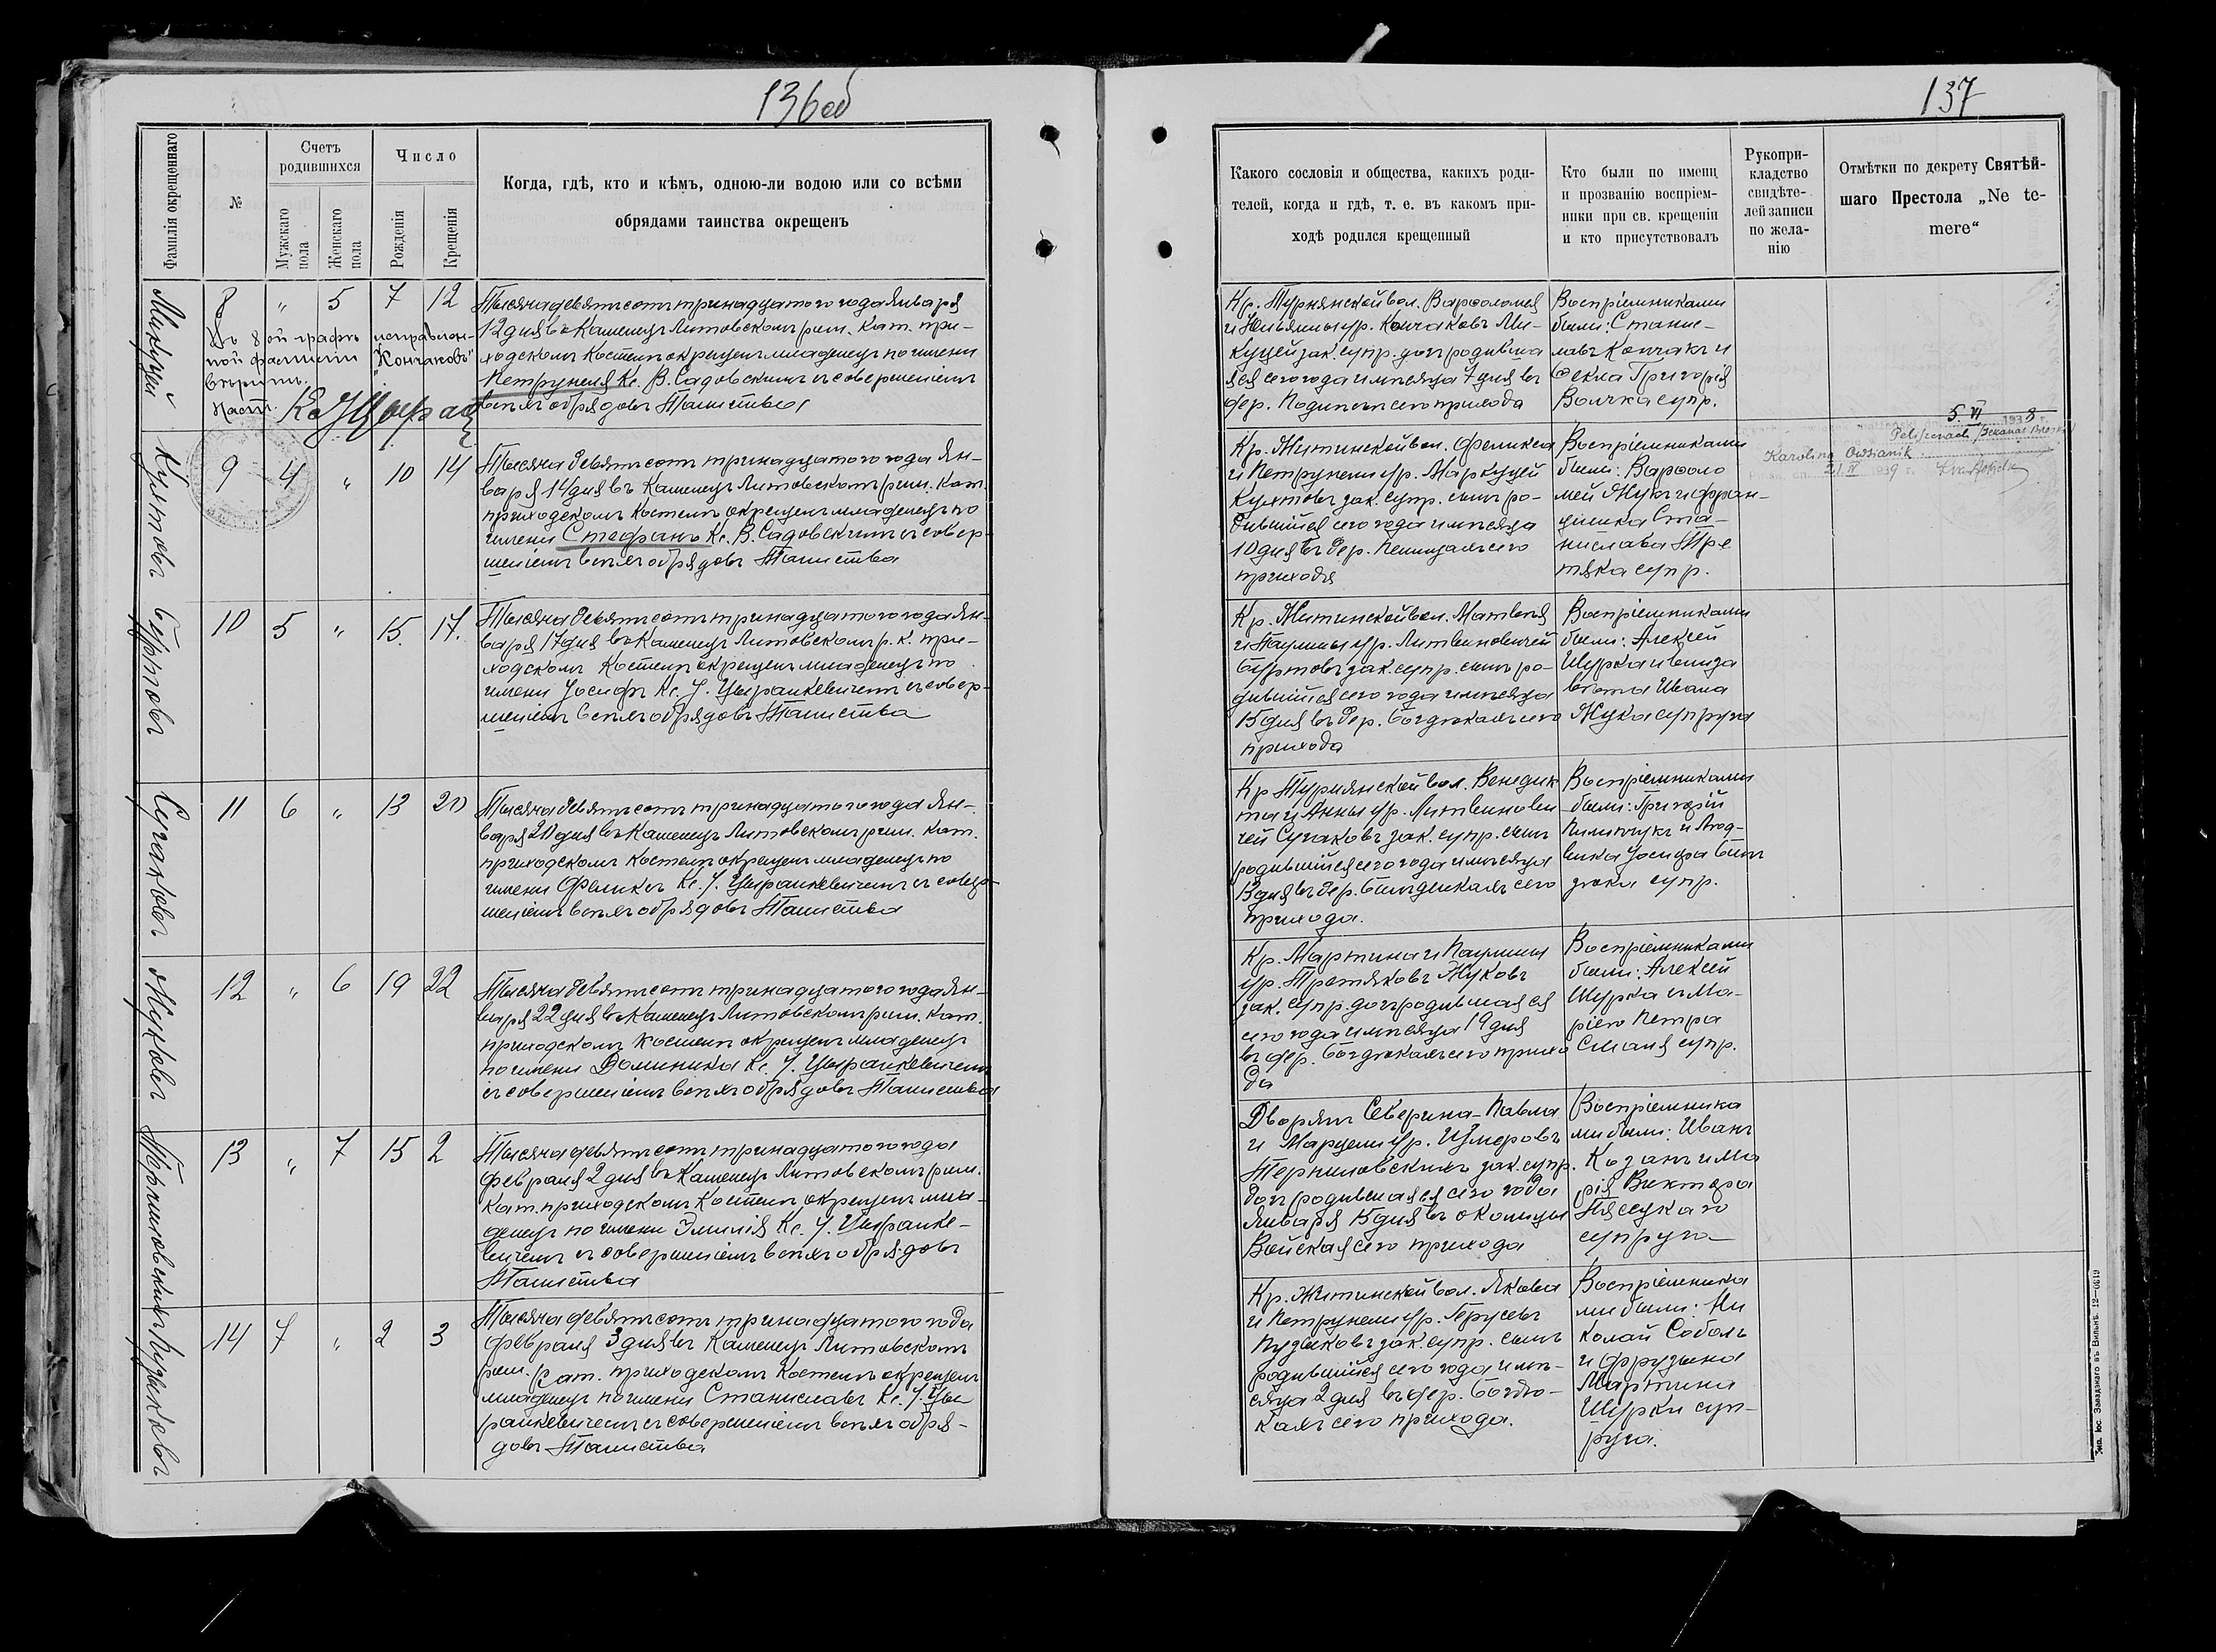 136об
Фамилія окрещеннаго
№
Счетъ
родившихся
Мужскаго
пола
Женскаго
пола
Число
Рожденія
Крещенія
Когда, гдѣ, кто и кѣмъ, одною-ли водою или со всѣми
обрядами таинства окрещенъ
Микуцей
8 " 5 7 12
Въ 8ой графѣ исправлен-
ной фамиліи „Кончаковъ"
вѣрить.
Наст.
Тысяча девятьсотъ тринадцатого года Января
12 дня въ Каменецъ Литовскомъ рим. кат. при-
ходскомъ Костелѣ окрещенъ младенецъ по имени
Петрунеля Кс. В. Садовскимъ съ совершеніемъ
всѣхъ обрядовъ Таинства
Культовъ
9 4 " 10 14
Тысяча девятьсотъ тринадцатого года Ян-
варя 14 дня въ Каменецъ Литовскомъ рим. кат.
приходскомъ Костелѣ окрещенъ младенецъ по
имени Стефанъ Кс. В. Садовскимъ съ совер-
шеніемъ всѣхъ обрядовъ Таинства
Буртовъ
10 5 " 15. 17.
Тысяча девятьсотъ тринадцатого года Ян-
варя 17 дня въ Каменецъ Литовскомъ р. к. при-
ходскомъ Костелѣ окрещенъ младенецъ по
имени Іосифъ Кс. І. Цыранкевичемъ съ совер-
шеніемъ всѣхъ обрядовъ Таинства
Сучаковъ
11 6 " 13 20
Тысяча девятьсотъ тринадцатого года Ян-
варя 20 дня въ Каменецъ Литовскомъ рим. кат.
приходскомъ Костелѣ окрещенъ младенецъ по
имени Феликсъ Кс. І. Цыранкевичемъ съ совер-
шеніемъ всѣхъ обрядовъ Таинства
Жуковъ
12 " 6 19 22
Тысяча девятьсотъ тринадцатого года Ян-
варя 22 дня въ Каменецъ Литовскомъ рим. кат.
приходскомъ Костелѣ окрещенъ младенецъ
по имени Доминика Кс. І. Цыранкевичемъ
съ совершеніемъ всѣхъ обрядовъ Таинства
Терпиловскихъ
13 " 7 15 2
Тысяча девятьсотъ тринадцатого года
Февраля 2 дня въ Каменецъ Литовскомъ рим.
кат. приходскомъ Костелѣ окрещенъ мла-
денецъ по имени Эмилія Кс. І. Цыранке-
вичемъ съ совершеніемъ всѣхъ обрядовъ
Таинства
Пузыковъ
14 7 " 2 3
Тысяча девятьсотъ тринадцатого года
Февраля 3 дня въ Каменецъ Литовскомъ
рим. кат. приходскомъ Костелѣ окрещенъ
младенецъ по имени Станиславъ Кс. І. Цы
ранкевичемъ съ совершеніемъ всѣхъ обря-
довъ Таинства
137
Какого сословія и общества, какихъ роди-
телей, когда и гдѣ, т. е. въ какомъ при-
ходѣ родился крещенный
Кто были по имени
и прозванію воспріем-
ники при св. крещеніи
и кто присутствовалъ
Рукопри-
кладство
свидѣте-
лей записи
по жела-
нію
Отмѣтки по декрету Святѣй-
шаго Престола „Ne te-
mere"
Кр. Турнянской вол. Варѳоломея
и Юльянны ур. Кончаковъ Ми-
куцей зак. супр. дочь родивша
яся сего года и мѣсяца 7 дня въ
дер. сего прихода
Воспріемниками
были: Станис-
лавъ Кончакъ и
Ѳекла Григорія
Волчка супр.
Кр. Житинской вол. Феликса
и Петрунели ур. Маркуцей
Культовъ зак. супр. сынъ ро-
дившійся сего года и мѣсяца
10 дня въ дер. сего
прихода
Воспріемниками
были: Варѳоло
мей Жукъ и Фран-
цишка Ста-
нислава Тре
тяка супр.
5 VI 1938
Karolina Owsianik
21.IV 1939 г.
Кр. Житинской вол. Матвея
и Паулины ур. Литвиновичей
Буртовъ зак. супр. сынъ ро-
дившійся сего года и мѣсяца
15 дня въ дер. Богдюкахъ сего
прихода
Воспріемниками
были: Алексей
Шурка и Елиза
вета Ивана
Жука супруга
Кр Турнянской вол. Венедик
та и Анны ур. Литвинови
чей Сучаковъ зак. супр. сынъ
родившійся сего года и мѣсяца
13 дня въ дер. сего
прихода.
Воспріемниками
были: Григорій
Пилипчукъ и Люд-
вика Іосифа Бог
дюка супр.
Кр. Мартина и Паулины
ур. Третяковъ Жуковъ
зак. супр. дочь родившаяся
сего года и мѣсяца 19 дня
въ дер. Богдюкахъ сего прихо
да
Воспріемниками
были: Алексей
Шурка и Ма-
рія Петра
супр.
Дворянъ Северина-Павла
и Марцели ур. Изморовъ
Терпиловскихъ зак. супр.
дочь родившаяся сего года
Января 15 дня въ околицы
Войская сего прихода
Воспріемника
ми были: Иванъ
Козакъ и Ма
рія Виктора
Пясецкаго
супруга
Кр. Житинской вол. Якова
и Петрунели ур. Герусевъ
Пузыковъ зак. супр. сынъ
родившійся сего года и мѣ-
сяца 2 дня въ дер. Богдю-
кахъ сего прихода.
Воспріемника
ми были: Ни
колай Соболь
и Фрузына
Мартина
Шурки суп-
руга.
Изд. Іос. Завадзкаго въ Вильнѣ. 12—0619